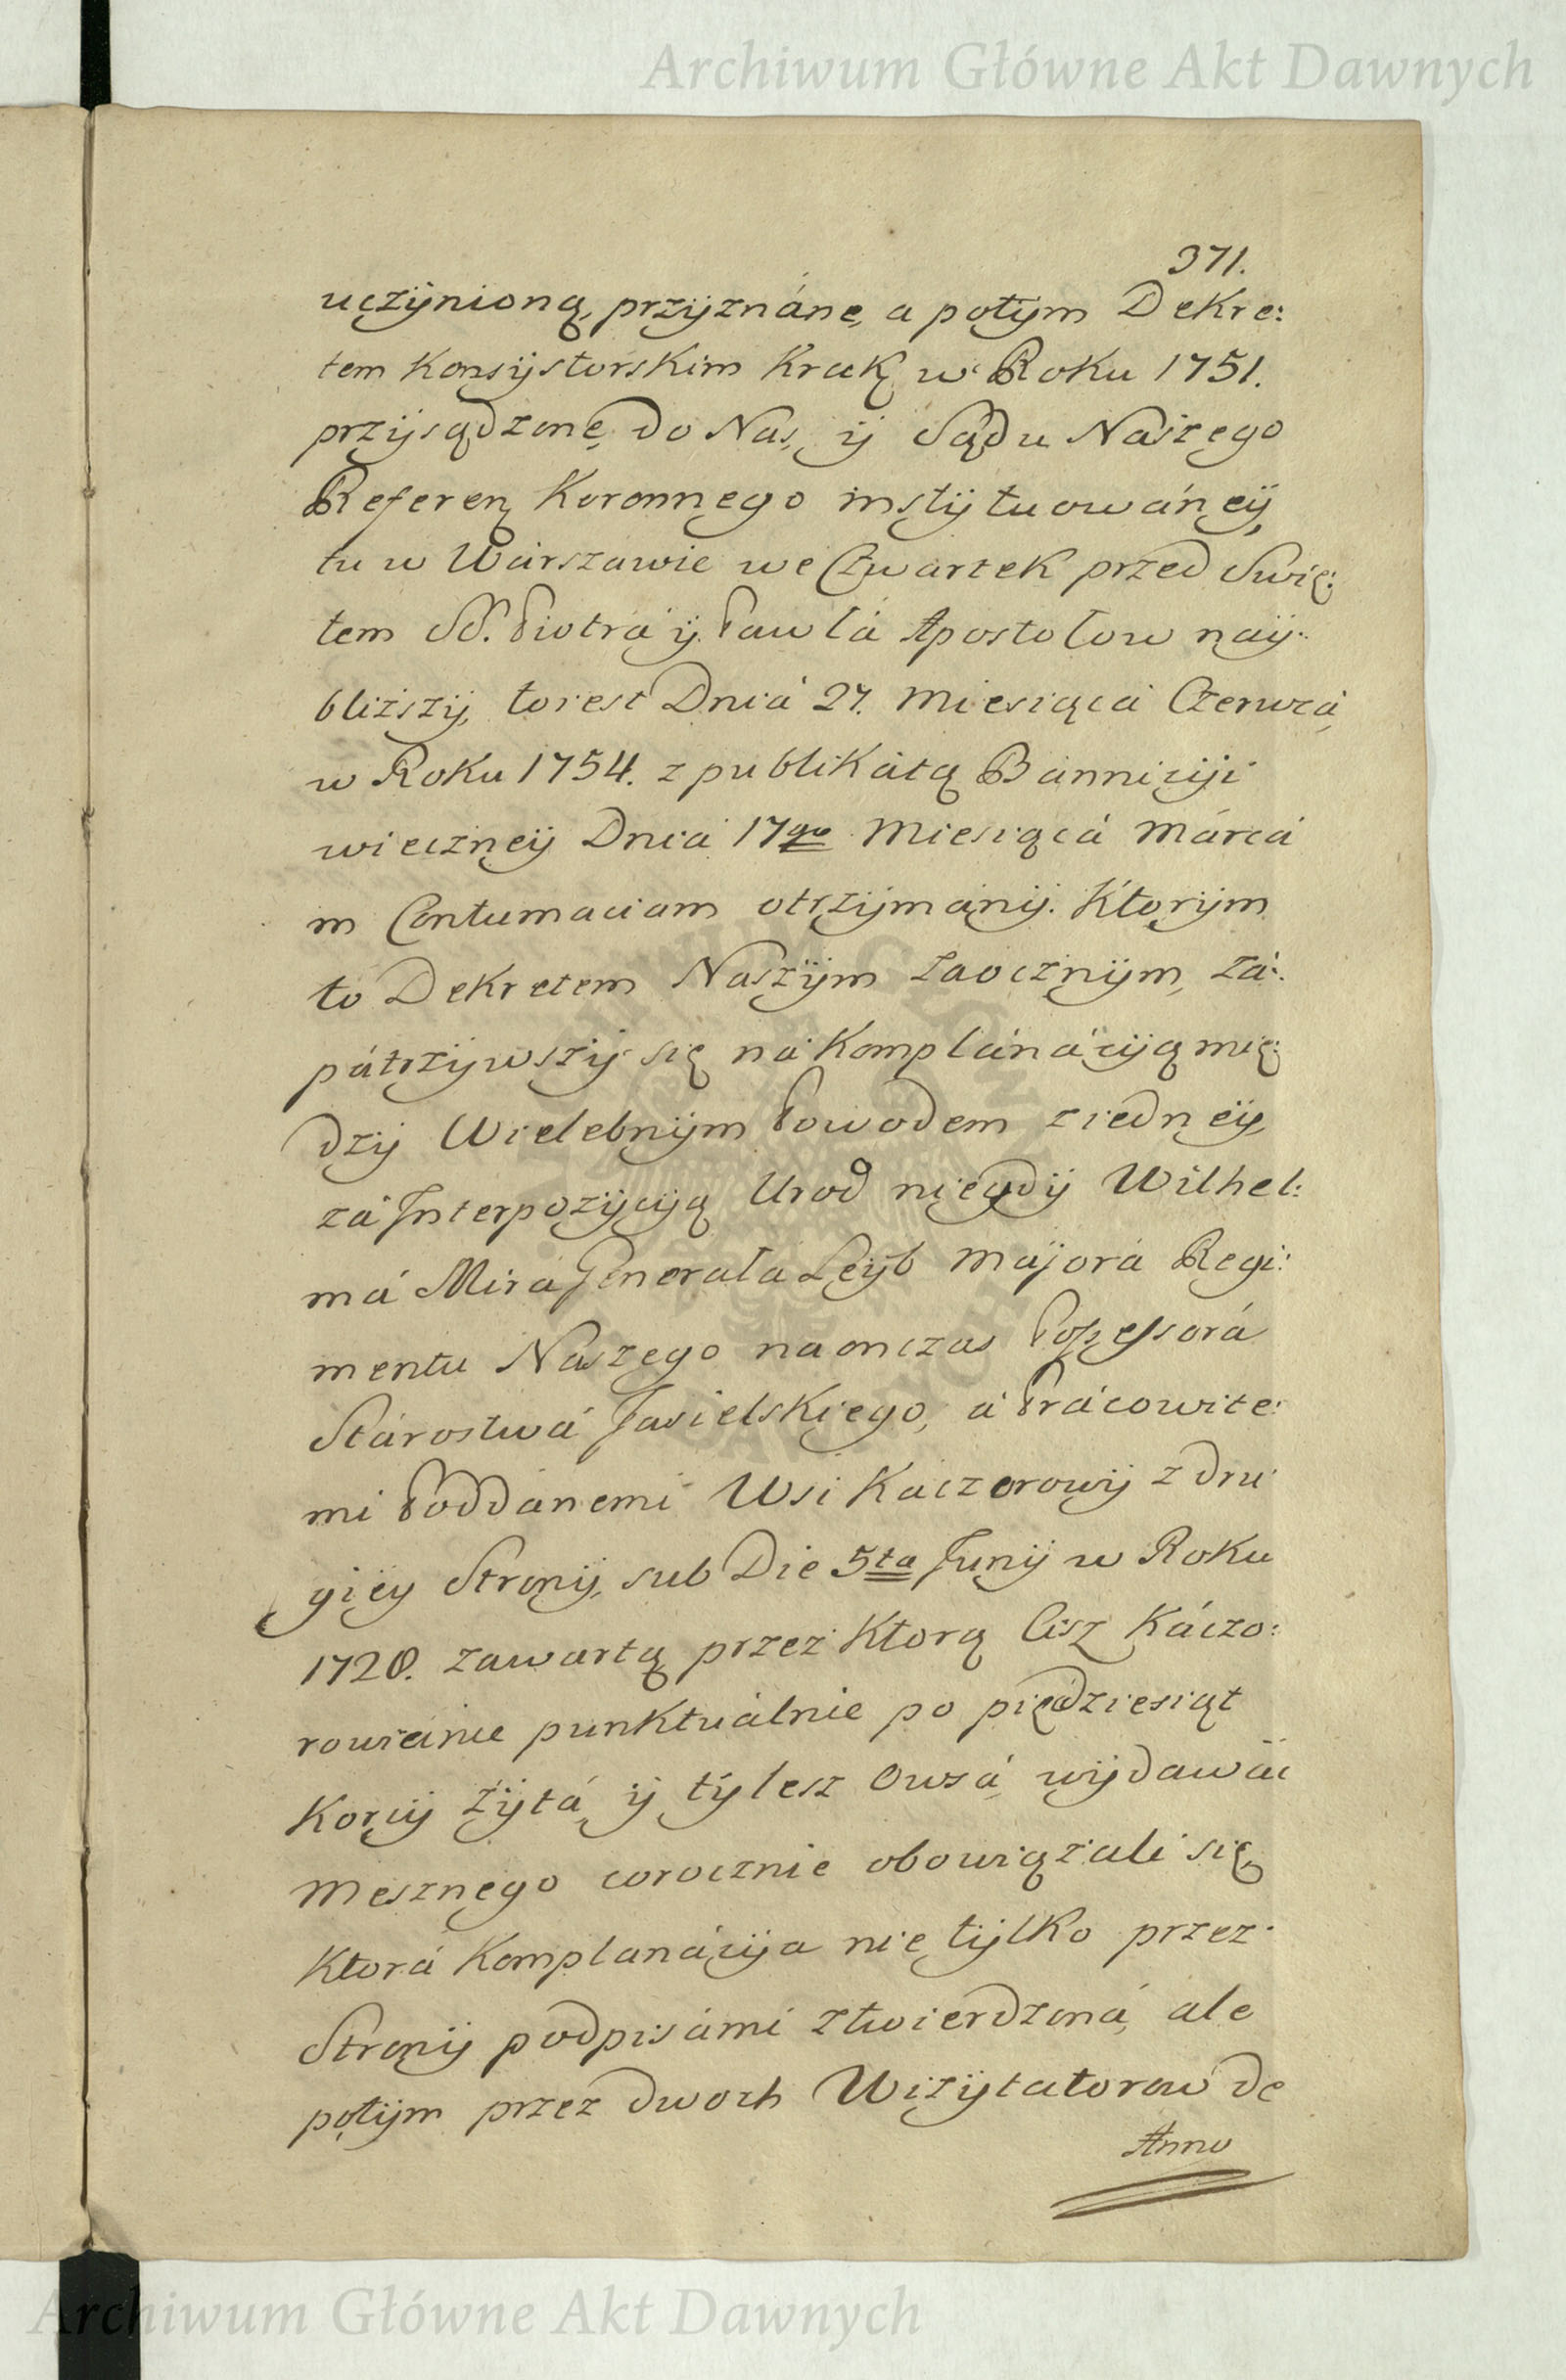 Archiwum Główne Akt Dawnych
371.
uczÿnioną, przÿznáne, a potÿm Dekre:
tem Konsÿstorskim Krak. w Roku 1751.
przÿsądzone do Nas, ÿ Sądu Nászego
Referen. Koronnego instÿtuowáneÿ,
tu w Wárszawie we Czwartek przed Swię:
tem SS. Piotrá ÿ Páwłá Apostołow naÿ:
bliższÿ, toiest Dniá 27. Miesiąca Czerwcá,
w Roku 1754. z publikátą Bánniciji
wieczneÿ Dniá 17go Miesiącá Márcá
in Contumaciam otrzÿmánÿ. Ktorÿm
to Dekretem Nászÿm záocznÿm, zá:
pátrzÿwszÿ się ná Komplánácÿą mię:
dzÿ Wielebnÿm Powodem z iedneÿ,
zá Interpozÿcÿą Urod niegdÿ Wilhel:
má Mirá Generałá Leÿb Májorá Regi:
mentu Nászego náonczas Possessorá
Stárostwá Jasielskiego, á Prácowite:
mi Poddánemi Wsi Káczorowÿ z dru
gieÿ Stronÿ, sub Die 5ta Junÿ w Roku
1728. záwártą, przez Ktorą Ciż Káczo:
rowiánie punktuálnie po pięćdziesiąt
Korcÿ żÿtá, ÿ tÿlesz Owsá, wÿdáwáć
Mesznego corocznie obowiązáli się,
Ktorá Komplánácÿa nie tÿlko przez
Stronÿ podpisámi ztwierdzoná, ale
potÿm przez dwoch Wizÿtátorow de
Anno
Archiwum Główne Akt Dawnych